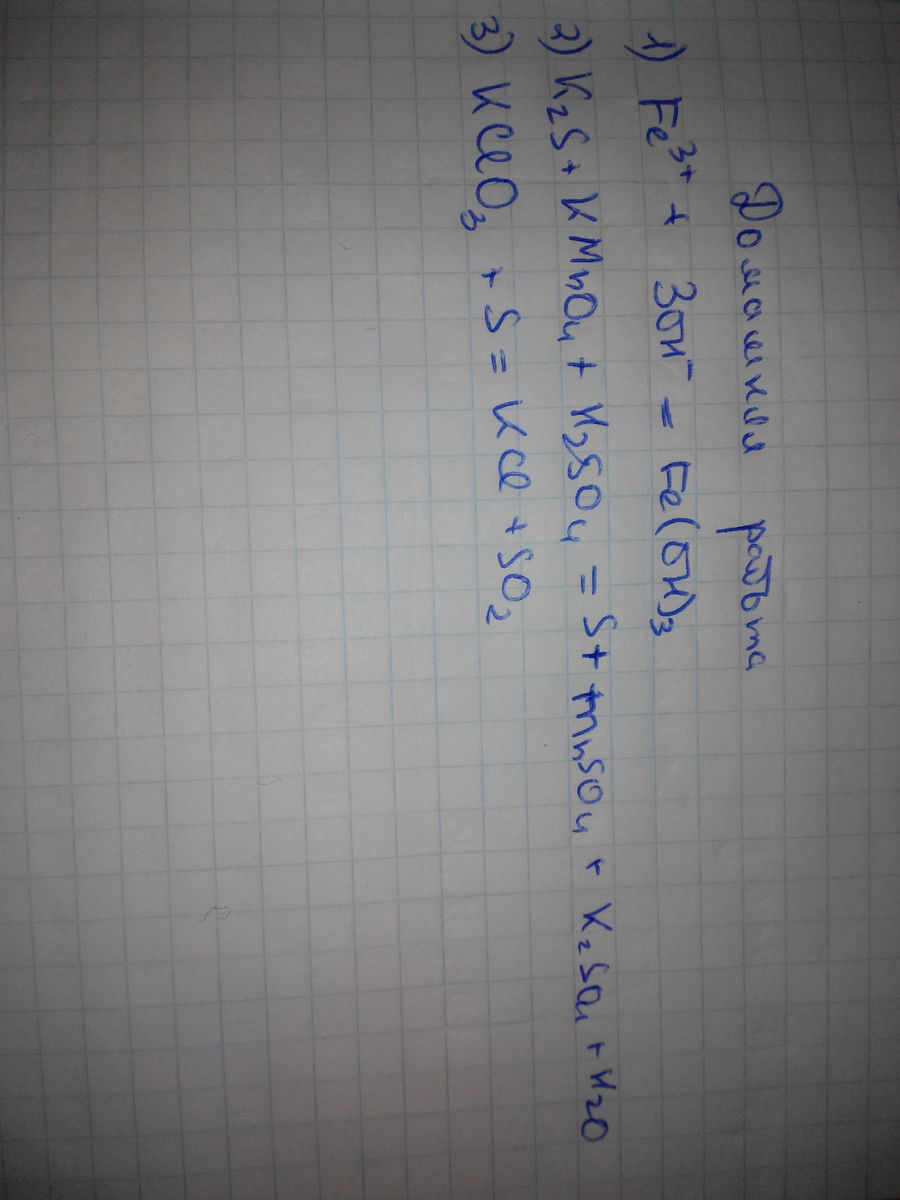 Домашняя работа
1) Fe³⁺ + 3OH⁻ = Fe(OH)₃
2) K₂S + KMnO₄ + H₂SO₄ = S + MnSO₄ + K₂SO₄ + H₂O
3) KClO₃ + S = KCl + SO₂